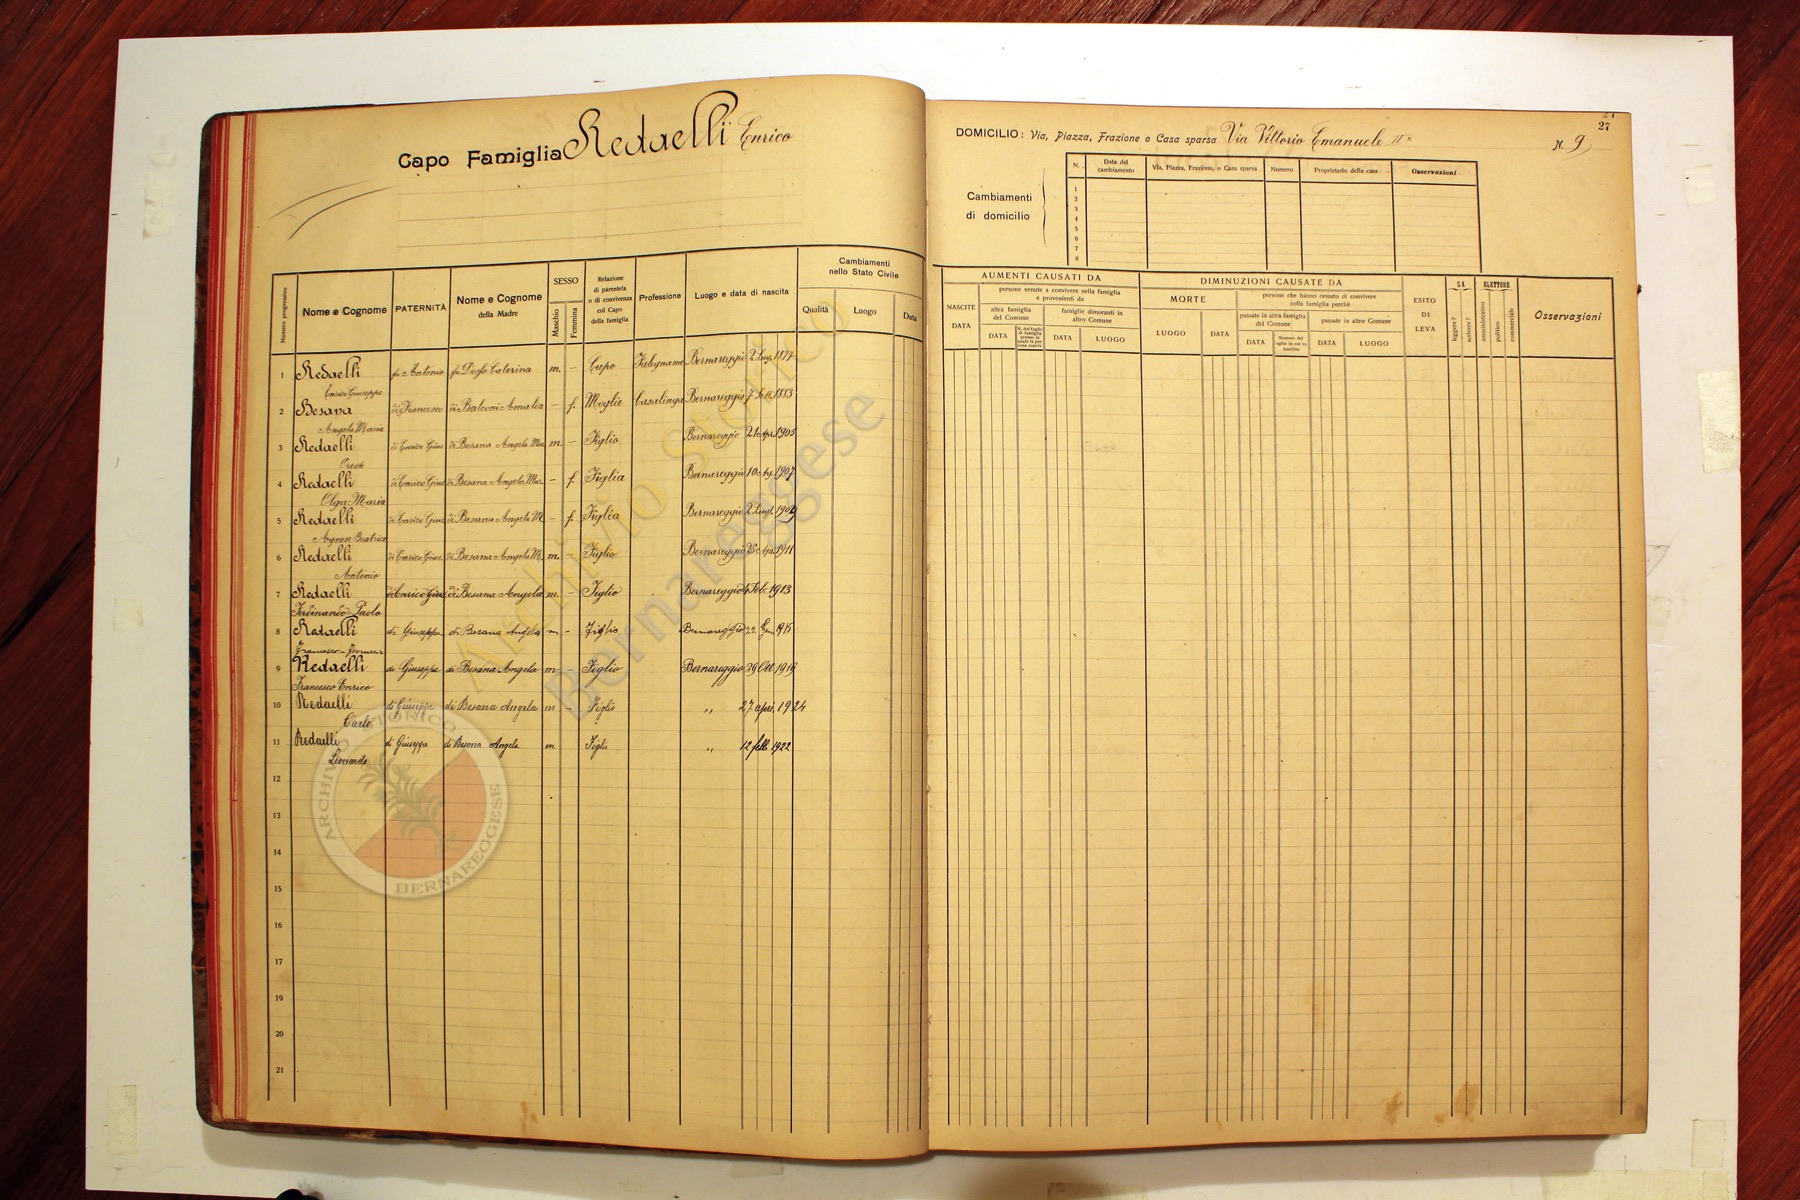 Capo Famiglia Redaelli Enrico
Numero progressivo
Nome e Cognome
PATERNITÀ
Nome e Cognome
della Madre
SESSO
Maschio
Femmina
Relazione
di parentela
o di convivenza
col Capo
della famiglia
Professione
Luogo e data di nascita
Cambiamenti
nello Stato Civile
Qualità
Luogo
Data
1 Redaelli fu Antonio fu Caterina m. – Capo Falegname Bernareggio 2 1877
Enrico Giuseppe
2 Besana di Francesco di Balconi Amalia – f. Moglie Casalinga Bernareggio 7 Sett. 1883
Angela Maria
3 Redaelli di Enrico Gius. di Besana Angela Mar. m. – Figlio Bernareggio 21 Apr. 1905
4 Redaelli di Enrico Gius. di Besana Angela Mar. – f. Figlia Bernareggio 10 1907
Olga Maria
5 Redaelli di Enrico Gius. di Besana Angela M. – f. Figlia Bernareggio 2 Lugl. 1909
Agnese Beatrice
6 Redaelli di Enrico Gius. di Besana Angela M. m. – Figlio Bernareggio Apr. 1911
Antonio
7 Redaelli di Enrico Gius. di Besana Angela m. – Figlio Bernareggio 4 Feb. 1913
Ferdinando Paolo
8 Redaelli di Giuseppe di Besana Angela m – Figlio Bernareggio 22 Gen. 1915
Francesco
9 Redaelli di Giuseppe di Besana Angela m – Figlio Bernareggio 29 Ott. 1916
Francesco Enrico
10 Redaelli di Giuseppe di Besana Angela m – Figlio " 27 apri. 1924
Carlo
11 Redaelli di Giuseppe di Besana Angela m. Figlio " 12 febb 1922
Leonardo
12
13
14
15
16
17
18
19
20
21
27
DOMICILIO: Via, Piazza, Frazione o Casa sparsa Via Vittorio Emanuele II° N. 9
Cambiamenti
di domicilio
N.
Data del
cambiamento
Via, Piazza, Frazione, o Casa sparsa
Numero
Proprietario della casa
Osservazioni
1
2
3
4
5
6
7
8
AUMENTI CAUSATI DA
NASCITE
DATA
persone venute a convivere nella famiglia
e provenienti da
altra famiglia
del Comune
DATA
N. del foglio
di famiglia
presso la
quale la per-
sona convive
famiglie dimoranti in
altro Comune
DATA
LUOGO
DIMINUZIONI CAUSATE DA
MORTE
LUOGO
DATA
persone che hanno cessato di convivere
colla famiglia perchè
passate in altra famiglia
del Comune
DATA
Numero del
foglio in cui va
inscritto
passate in altro Comune
DATA
LUOGO
ESITO
DI
LEVA
SA
leggere?
scrivere?
ELETTORE
amministrativo
politico
commerciale
Osservazioni
Archivio storico
Bernareggese
ARCHIVIO STORICO
BERNAREGGESE